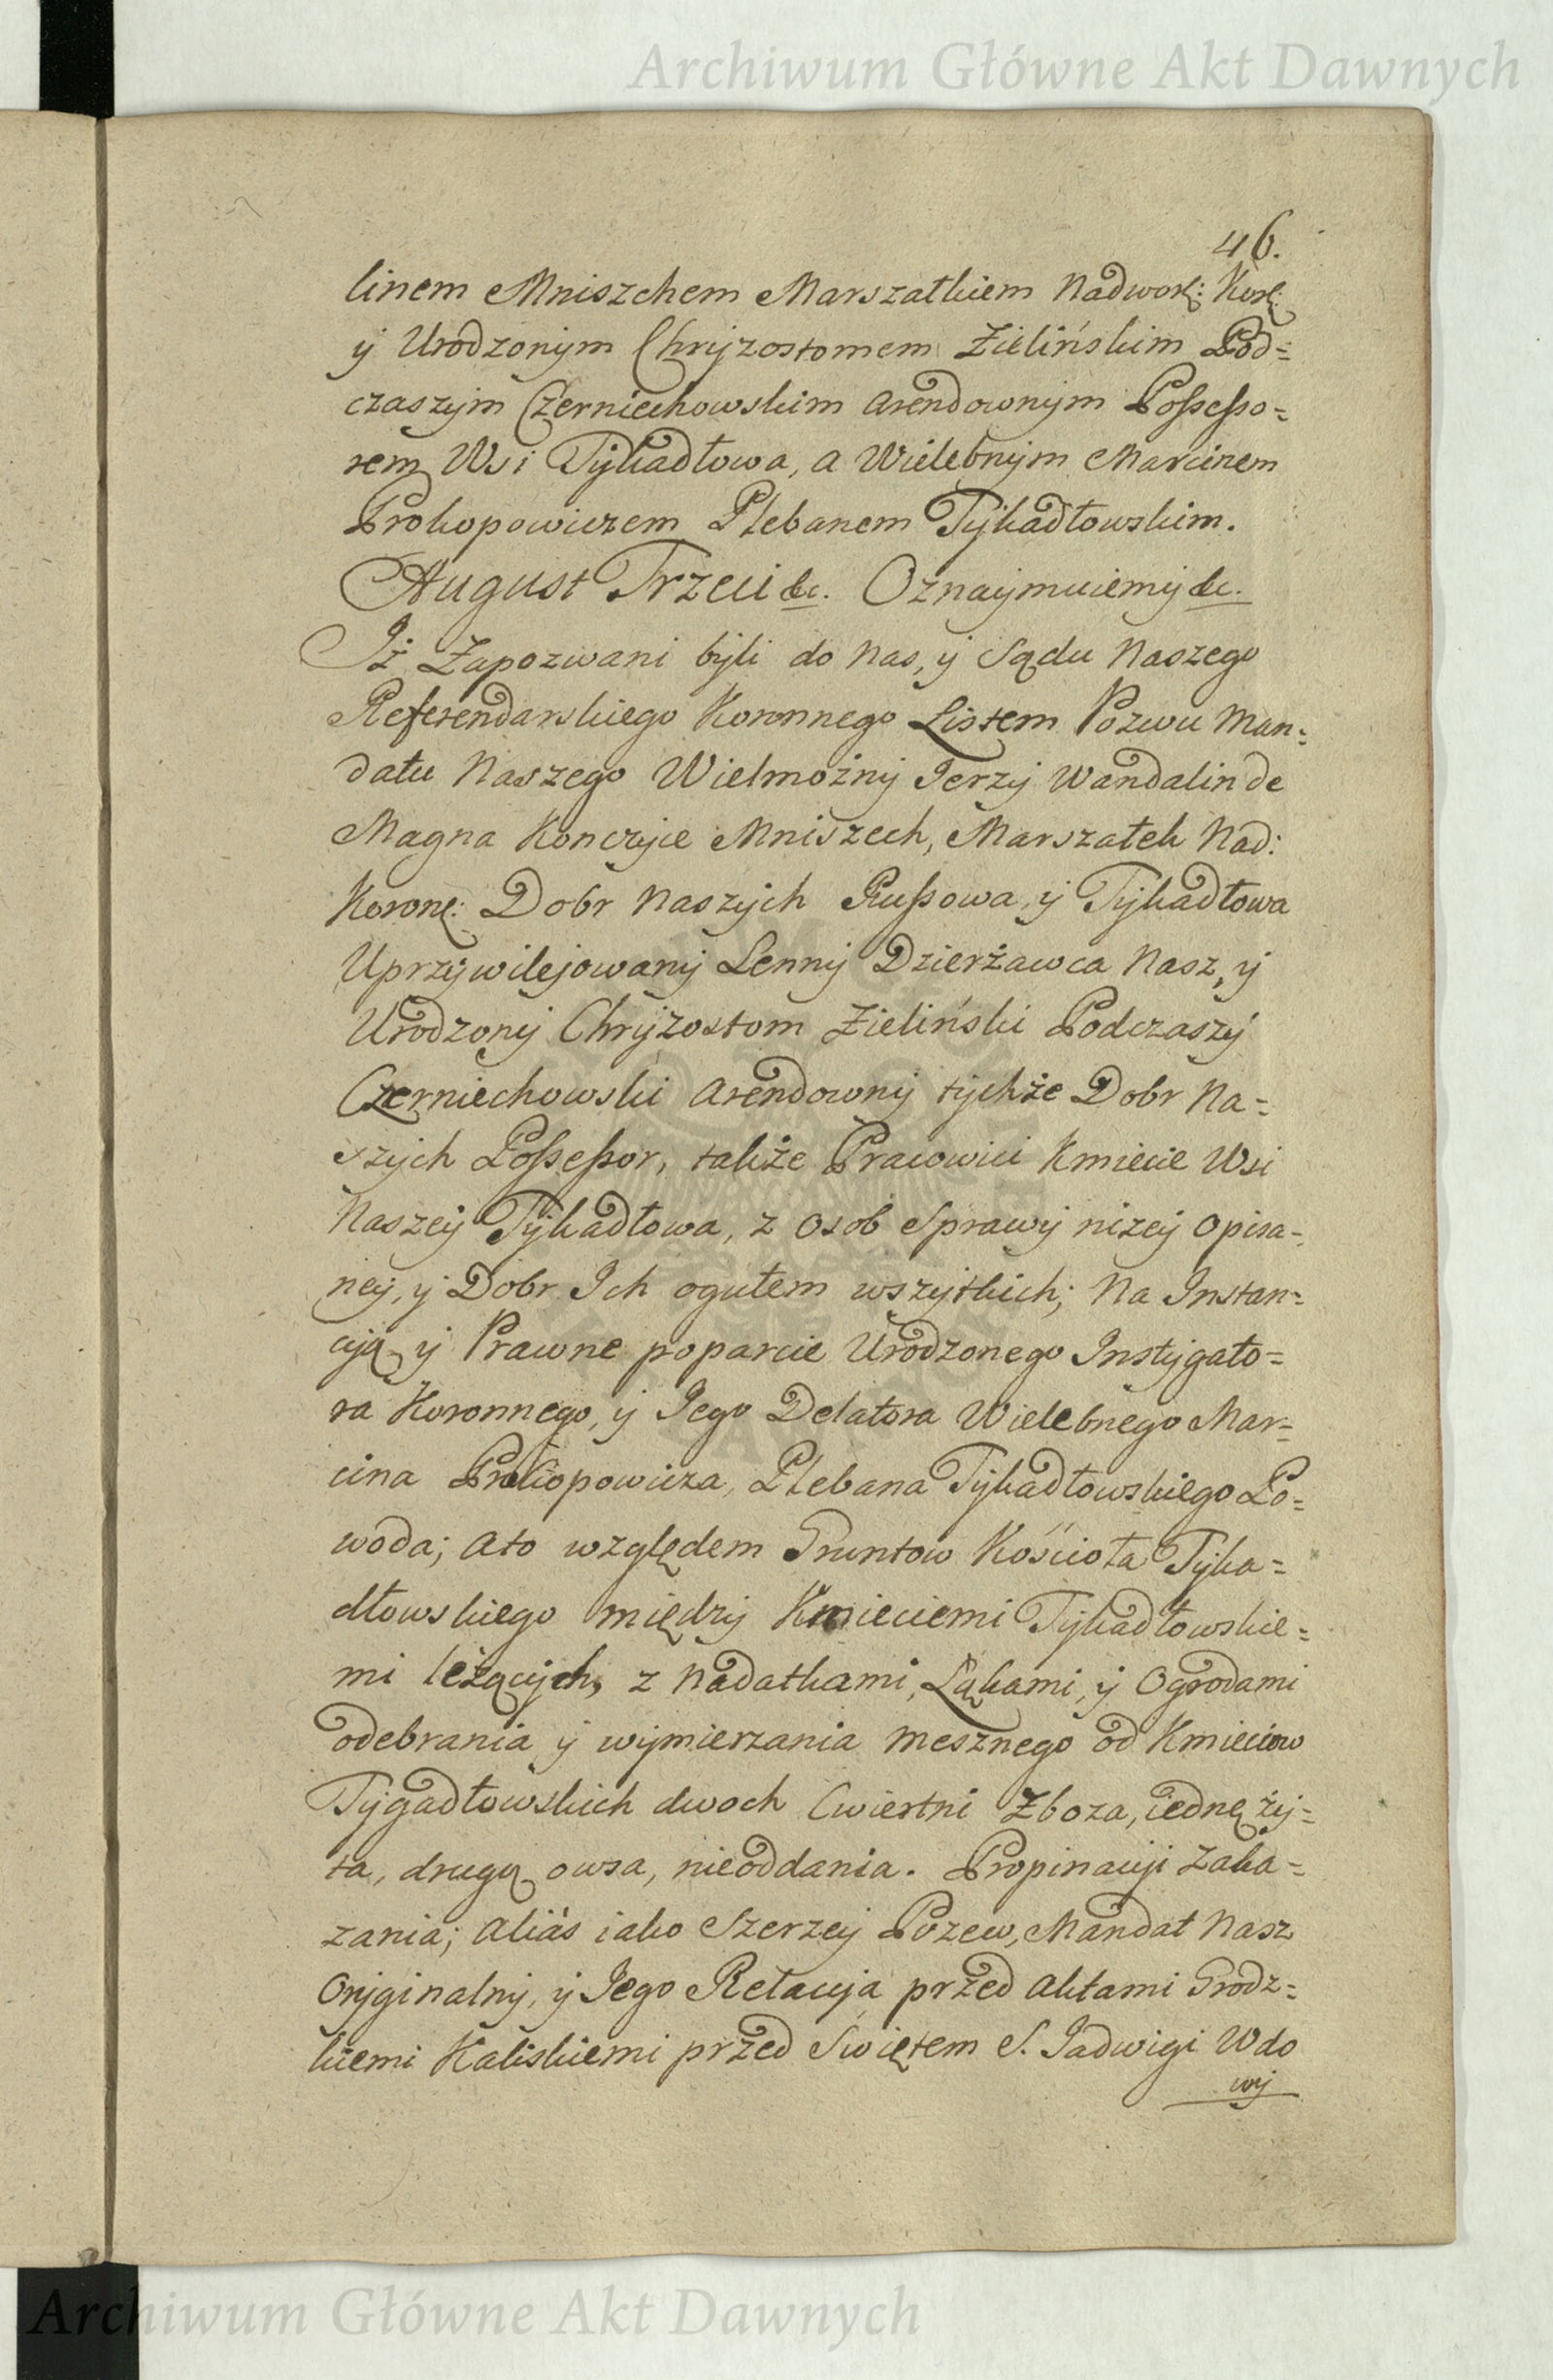 Archiwum Główne Akt Dawnych
46.
linem Mniszchem Marszałkiem Nadworn: Korn:
y Urodzonym Chryzostomem Zielińskim Pod=
czaszym Czerniechowskim Arendownym Possesso=
rem Wsi Tykadłowa, a Wielebnym Marcinem
Prokopowiczem Plebanem Tykadłowskim.
August Trzeci &c. Oznaymuiemy &c.
Iż Zapozwani byli do Nas, y Sądu Naszego
Referendarskiego Koronnego Listem Pozwu Man=
datu Naszego Wielmożny Jerzy Wandalin de
Magna Konczyce Mniszech, Marszałek Nad:
Koronn: Dobr Naszych Russowa, y Tykadłowa
Uprzywilejowany Lenny Dzierżawca Nasz, y
Urodzony Chryzostom Zieliński Podczaszy
Czerniechowski Arendowny tychże Dobr Na=
szych Possessor, także Pracowici Kmiecie Wsi
Naszey Tykadłowa, z Osób Sprawy niżey Opisa=
ney, y Dobr Ich ogułem wszystkich; Na Instan=
cyą y Prawne poparcie Urodzonego Instygato=
ra Koronnego, y Jego Delatora Wielebnego Mar=
cina Prokopowicza, Plebana Tykadłowskiego Po=
woda; Ato względem Gruntow Kościoła Tyka=
dłowskiego między Kmieciemi Tykadłowskie=
mi leżących, z Nadatkami, Łąkami, y Ogrodami
odebrania y wymierzania mesznego od Kmieciow
Tygadłowskich dwoch Cwiertni Zboża, iednę ży=
ta, drugą owsa, nieoddania. Propinacyi Zaka=
zania; Aliàs iako Szerzey Pozew, Mandat Nasz
Oryginalny, y Jego Relacyja przed Aktami Grodz=
kiemi Kaliskiemi przed Swiętem S. Jadwigi Wdo
wy
Archiwum Główne Akt Dawnych